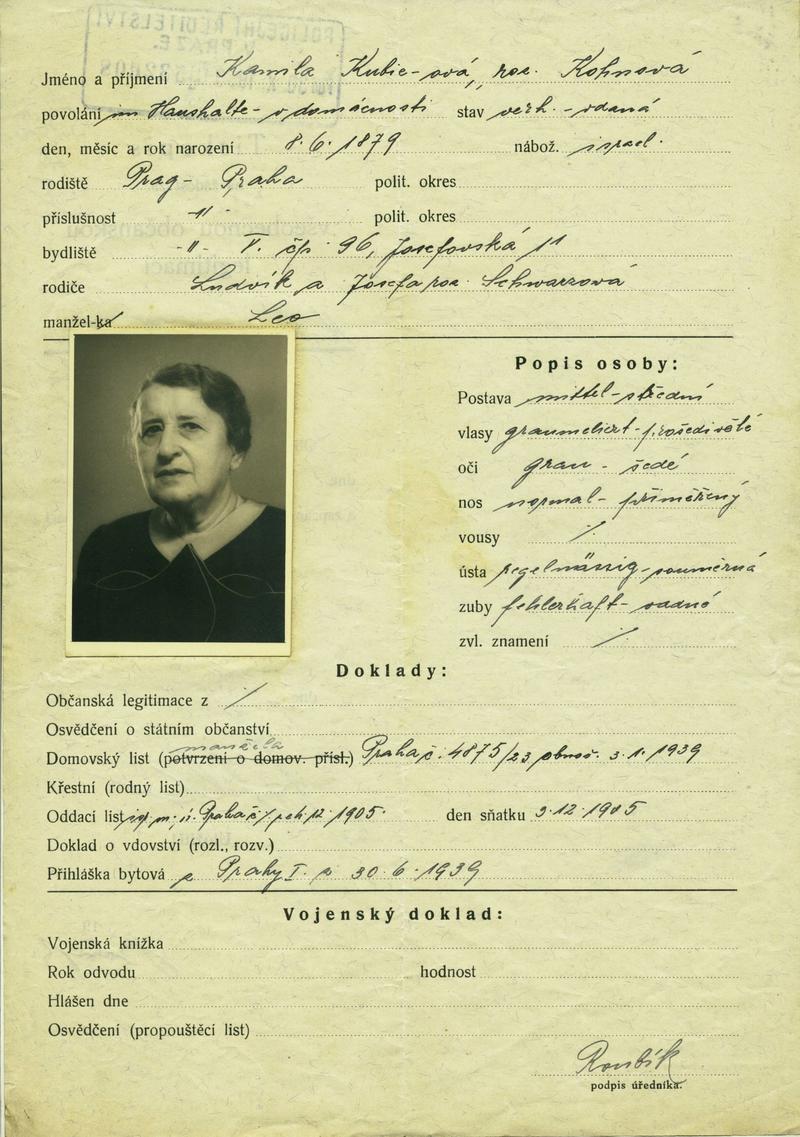 Jméno a příjmení Kamila Kubie-ová, roz. Kohnová
povolání im Haushalte - v domácnosti stav verh. - vdaná
den, měsíc a rok narození 8.6.1879 nábož. israel.
rodiště Prag - Praha polit. okres
příslušnost -"- polit. okres
bydliště -"- V. čp. 96, Josefovská 11
rodiče Ludvík a Josefa roz. Schwarzová
manžel-ka Leo
Popis osoby:
Postava mittel - střední
vlasy graumeliert - prošedivělé
oči grau - šedé
nos normal - přiměřený
vousy /
ústa regelmässig - souměrná
zuby fehlerhaft - vadné
zvl. znamení /
Doklady:
Občanská legitimace z /
Osvědčení o státním občanství
manžela
Domovský list (potvrzení o domov. přísl.) Praha č. 4875/23 obnov. 3.1.1939
Křestní (rodný list)
Oddací list Praha 12 1905 den sňatku 3.12.1905
Doklad o vdovství (rozl., rozv.)
Přihláška bytová z Prahy I. z 30.6.1939
Vojenský doklad:
Vojenská knížka
Rok odvodu hodnost
Hlášen dne
Osvědčení (propouštěcí list)
Roubík
podpis úředníka.